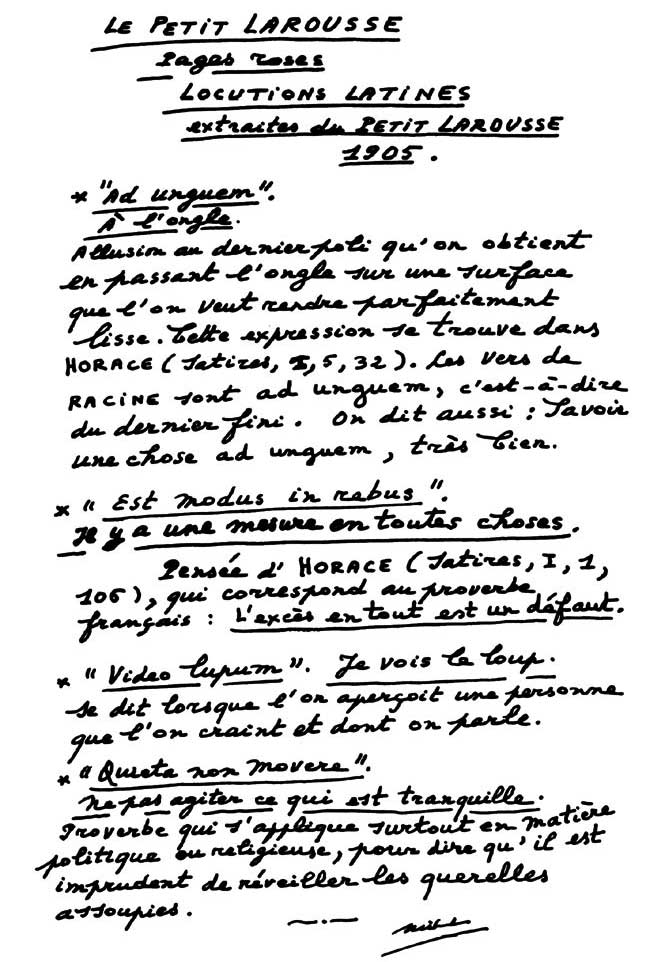 LE PETIT LAROUSSE
Pages roses
LOCUTIONS LATINES
extraites du PETIT LAROUSSE
1905.
* "Ad unguem".
À l'ongle.
Allusion au dernier poli qu'on obtient
en passant l'ongle sur une surface
que l'on veut rendre parfaitement
lisse. Cette expression se trouve dans
HORACE (Satires, I, 5, 32). Les vers de
RACINE sont ad unguem, c'est-à-dire
du dernier fini. On dit aussi : Savoir
une chose ad unguem, très bien.
* "Est modus in rebus".
Il y a une mesure en toutes choses.
Pensée d'HORACE (Satires, I, 1,
106), qui correspond au proverbe
français : L'excès en tout est un défaut.
* "Video lupum". Je vois le loup.
Se dit lorsque l'on aperçoit une personne
que l'on craint et dont on parle.
* "Quieta non movere".
Ne pas agiter ce qui est tranquille.
Proverbe qui s'applique surtout en matière
politique ou religieuse, pour dire qu'il est
imprudent de réveiller les querelles
assoupies.